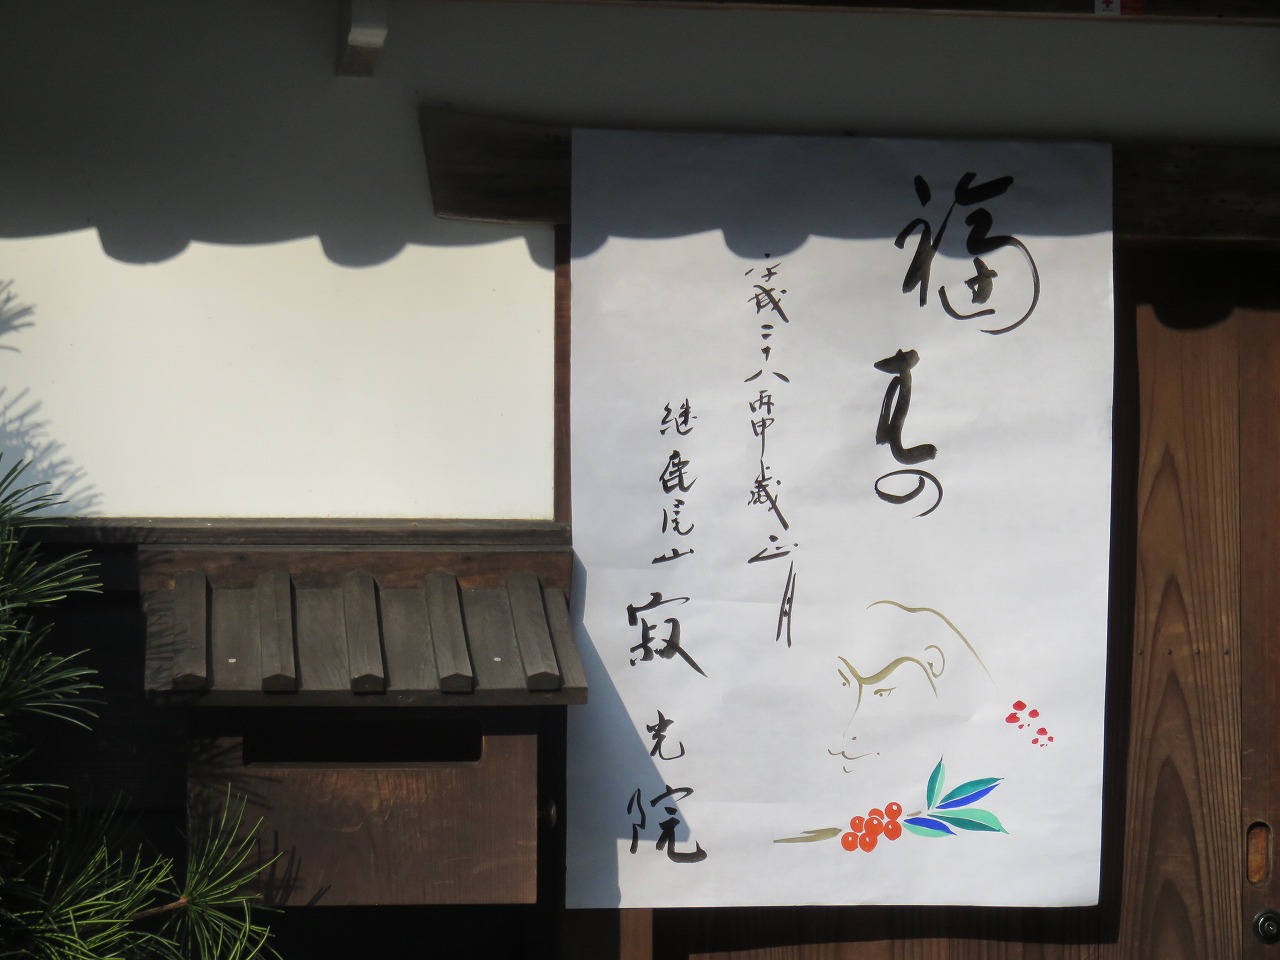 福
はの
平成二十八丙申歳正月
継鹿尾山 寂光院